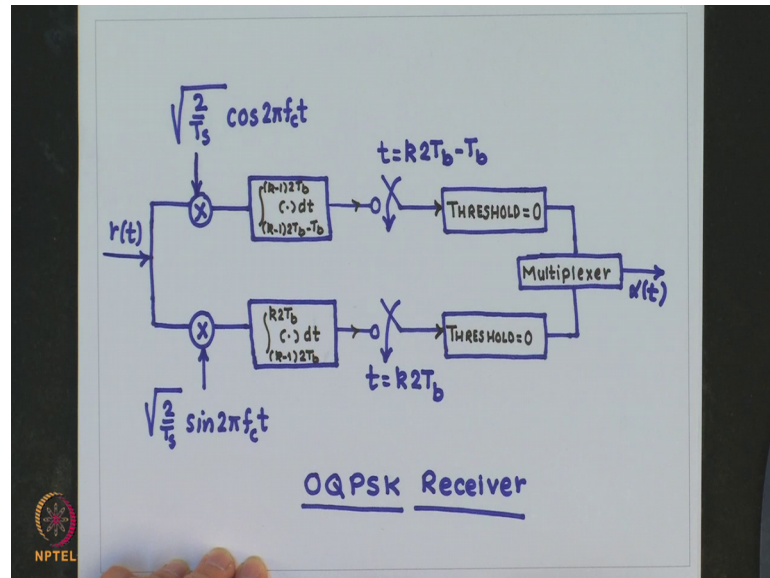 √(2/Ts) cos2πfct
t=k2Tb-Tb
r(t)
X
∫ (k-1)2Tb-Tb (k-1)2Tb (·)dt
THRESHOLD=0
Multiplexer
α'(t)
X
∫ (k-1)2Tb k2Tb (·)dt
THRESHOLD=0
t=k2Tb
√(2/Ts) sin2πfct
OQPSK Receiver
NPTEL